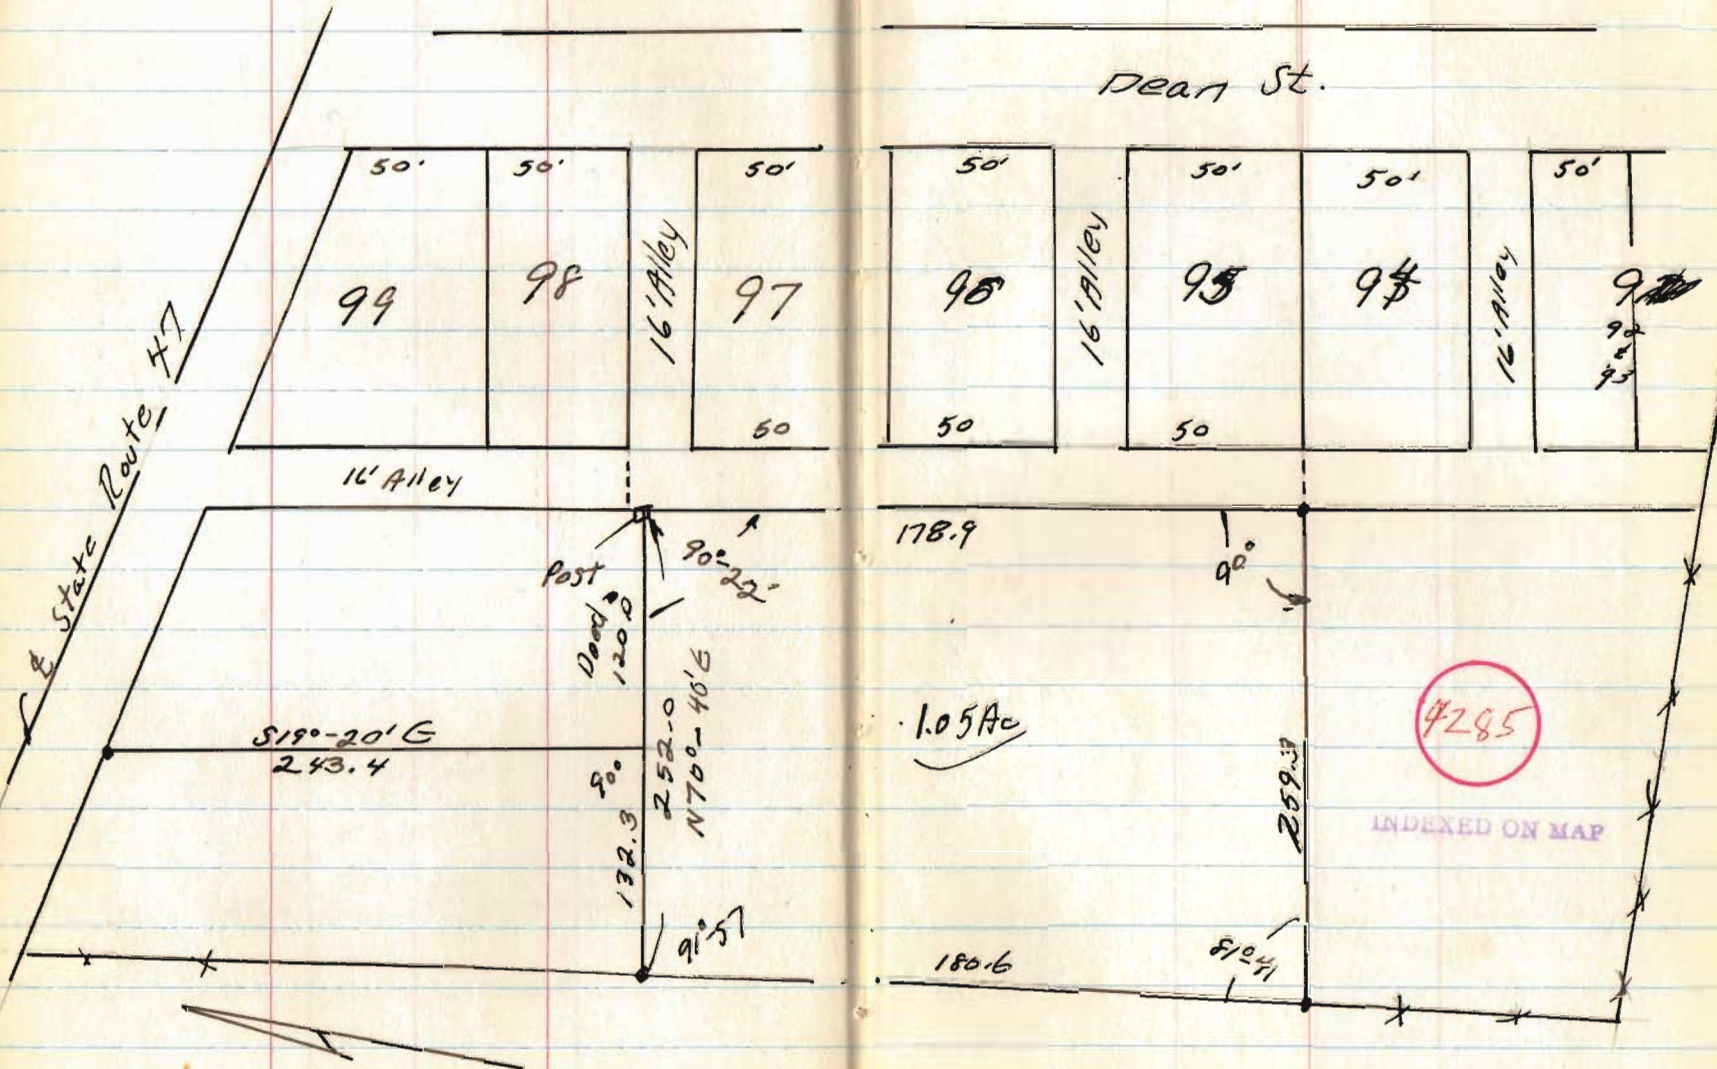 Dean St.
50'
50'
50'
50'
50'
50'
50'
99
98
16' Alley
97
96
16' Alley
95
94
16' Alley
9
92
&
93
50
50
50
℄ State Route 47
16' Alley
Post
90°-22'
178.9
90°
Deed
120.0
252.0
N70°-40'E
S19°-20'E
243.4
90°
132.3
91°-57
1.05Ac
259.3
4285
INDEXED ON MAP
180.6